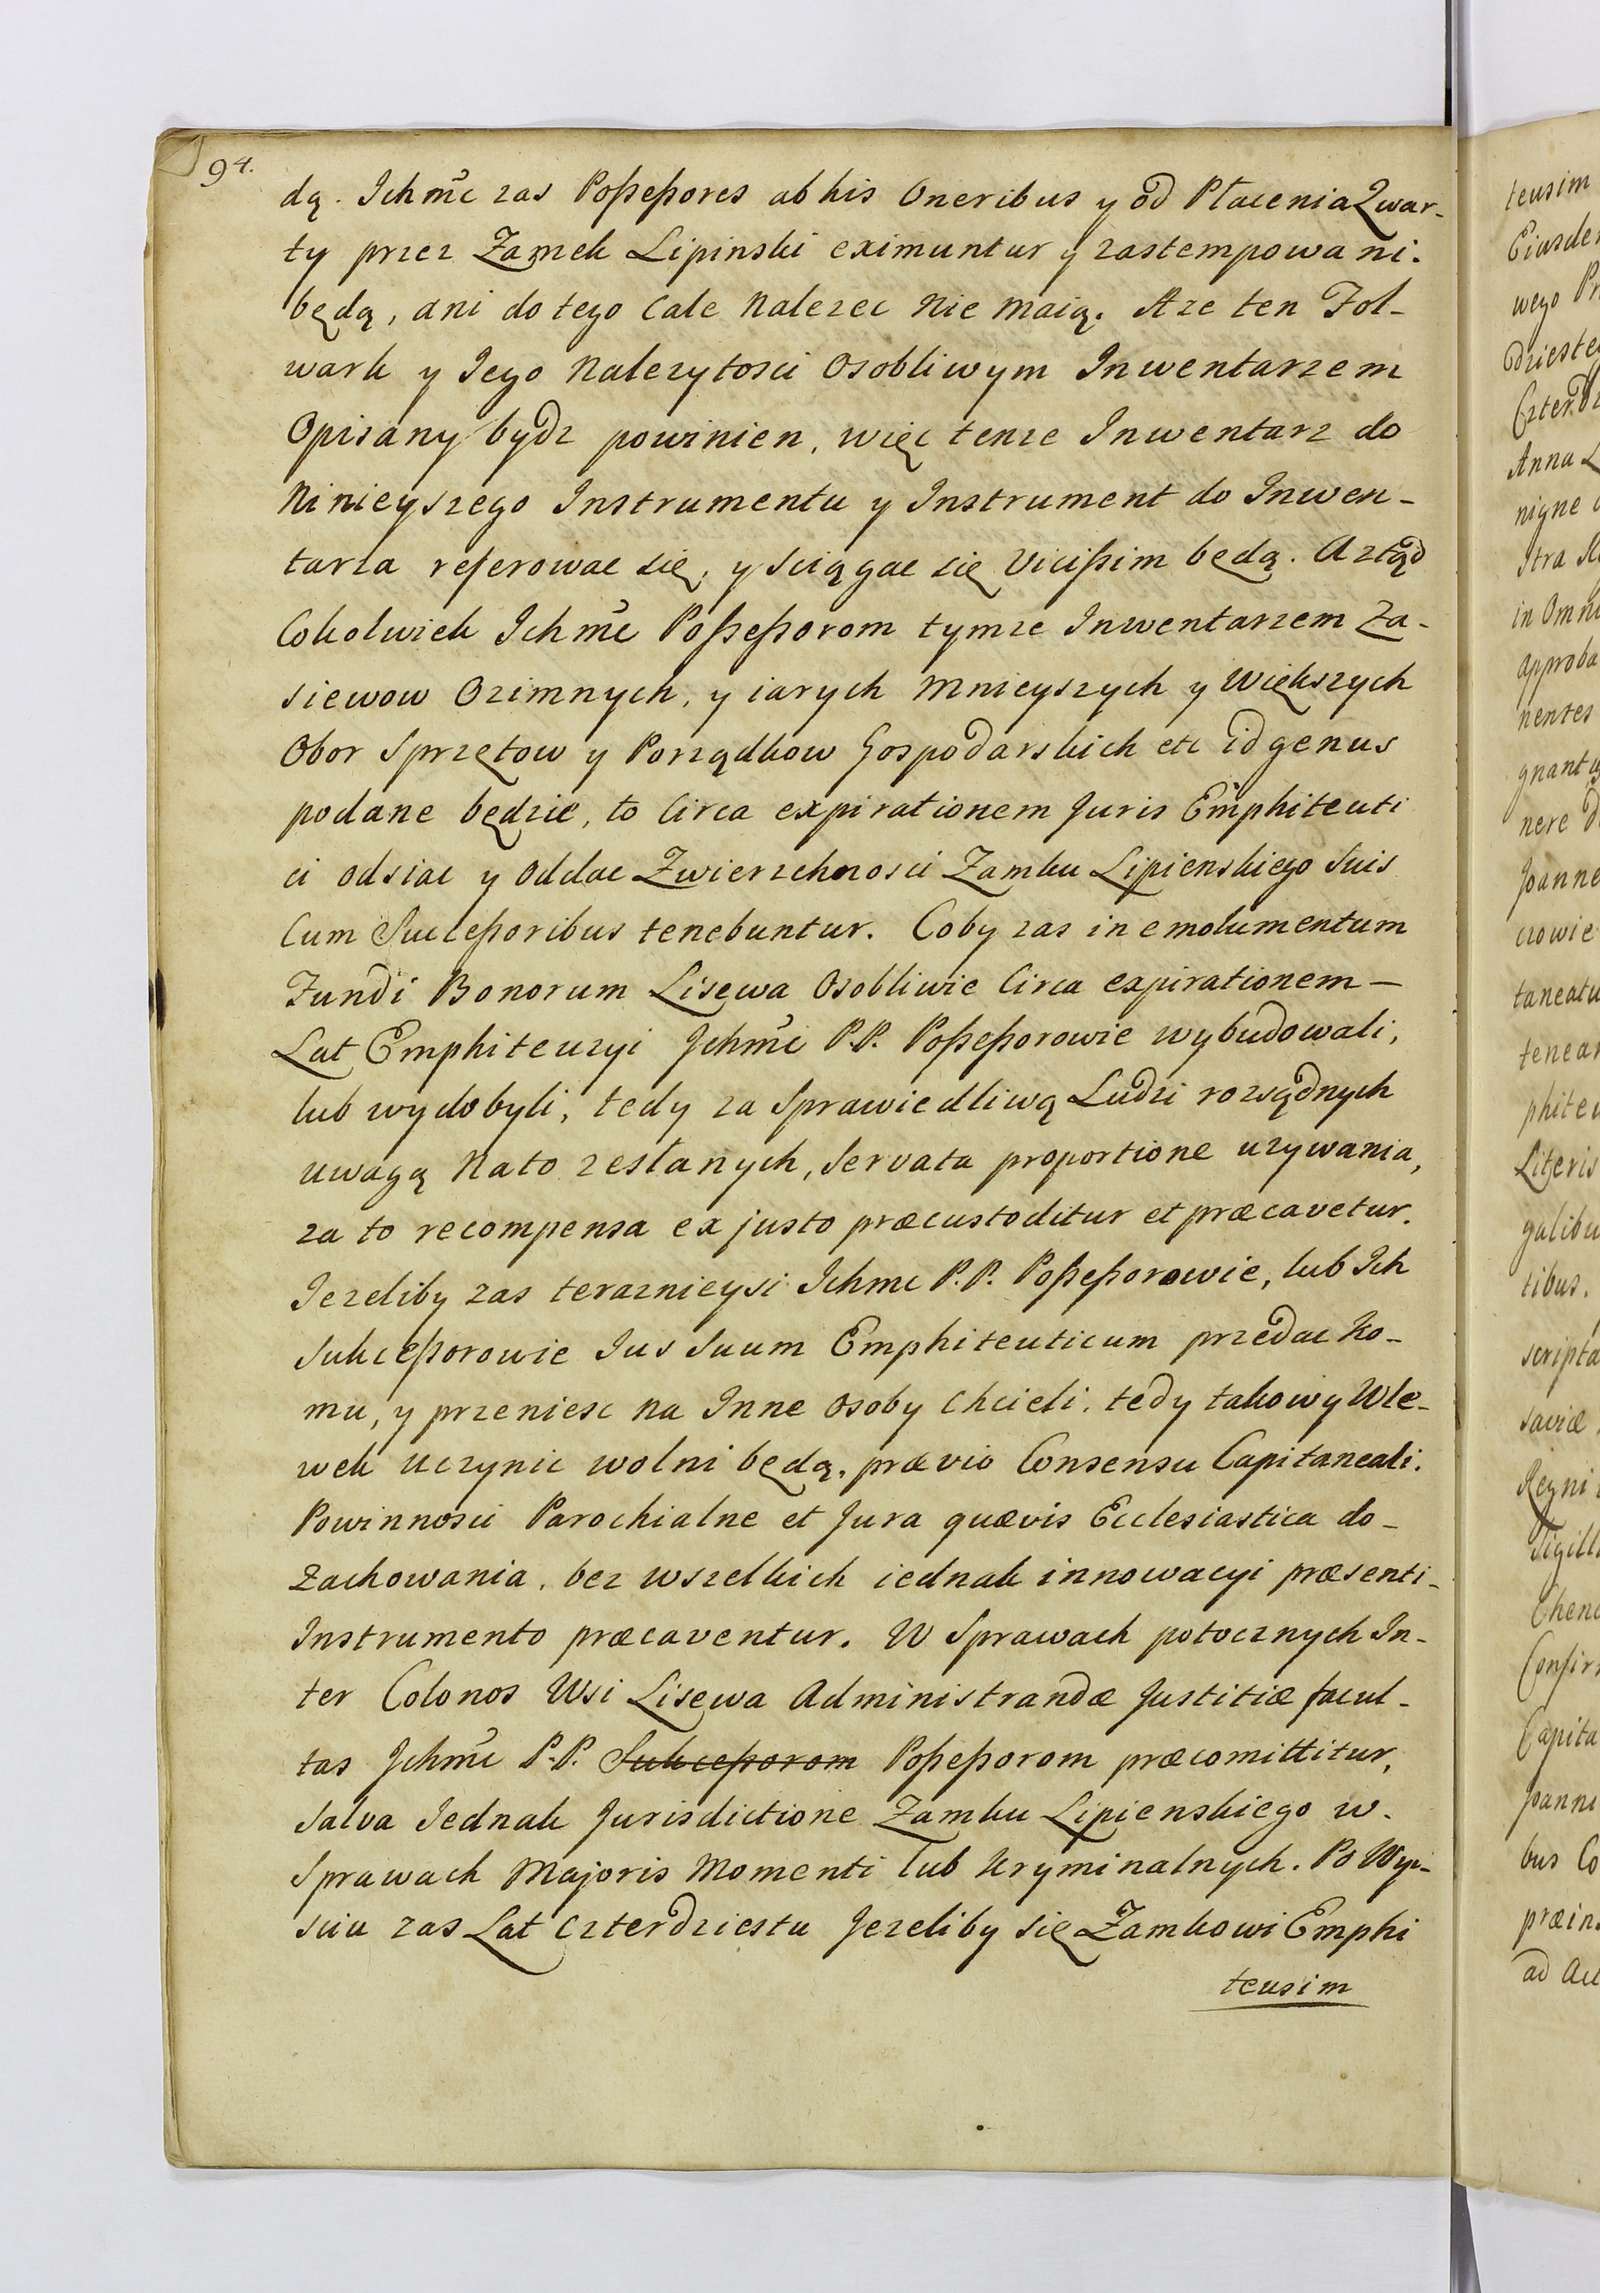 94.
dą. Ichmć zas Poßeßores ab his Oneribus y od Płacenia Qwar-
ty przez Zamek Lipinski eximuntur y zastempowani.
będą, ani do tego Cale Nalezec Nie maią. Aze ten Fol-
wark y Jego Nalezytosci Osobliwym Inwentarzem
Opisany bydz powinien, więc tenze Inwentarz do
Ninieyszego Instrumentu y Instrument do Inwen-
tarza referowac się, y sciągac się Vicißim będą. A ztąd
Cokolwiek Ichmć Poßeßorom tymze Inwentarzem Za-
siewow Ozimnych, y iarych Mnieyszych y Większych
Obor Sprzętow y Porządkow Gospodarskich etc id genus
podane będzie, to Circa expirationem Juris Emphiteuti
ci odsiac y Oddac Zwierzchnosci Zamku Lipienskiego Suis
Cum Succeßoribus tenebuntur. Coby zas in emolumentum
Fundi Bonorum Lisewa Osobliwie Circa expirationem —
Lat Emphiteuzyi Jchmć P.P. Poßeßorowie wybudowali,
lub wydobyli, tedy za Sprawiedliwą Ludzi rozsądnych
uwagą Nato zesłanych, Servata proportione uzywania,
za to recompensa ex justo præcustoditur et præcavetur.
Jezeliby zas teraznieysi Ichmc P.P. Poßeßorowie, lub Ich
Sukceßorowie Jus Suum Emphiteuticum przedac Ko-
mu, y przeniesc na Inne Osoby Chcieli, tedy takowy Wle-
wek uczynic wolni będą, prævio Consensu Capitaneali.
Powinnosci Parochialne et Jura quævis Ecclesiastica do-
Zachowania, bez wszelkich iednak innowacyi præsenti-
Instrumento præcaventur. W Sprawach potocznych In-
ter Colonos Wsi Lisewa Administrandæ Justitiæ facul-
tas Jchmć P.P. Sukceßorom Poßeßorom præcomittitur,
Salva Jednak Jurisdictione Zamku Lipienskiego w-
Sprawach Majoris Momenti lub Kryminalnych. Po Wyi-
sciu zas Lat Czterdziestu Jezeliby się Zamkowi Emphi
teusim
teusim
wego
Anna
nigne
in Omni
nentes
nere
Joanne
tibus.
scripta
saviæ
Regni
ad